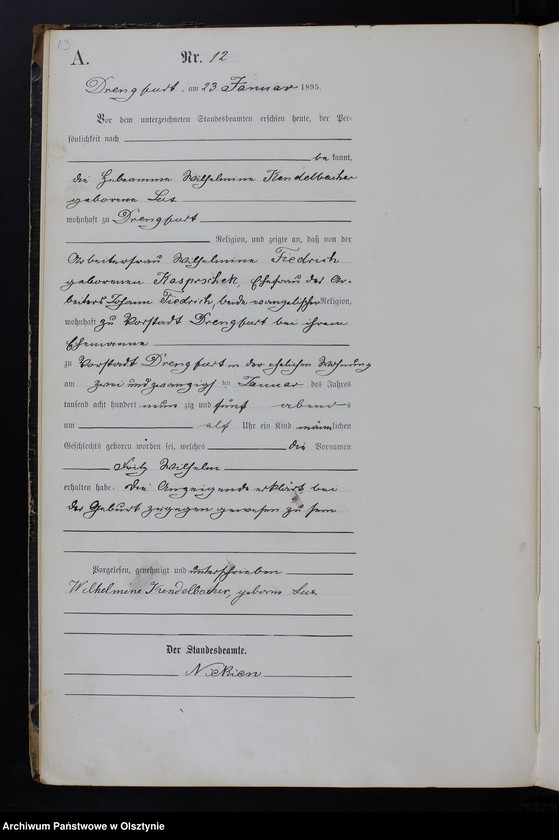 13
A.
Nr. 12
Drengfurt, am 23 Januar 1895.
Vor dem unterzeichneten Standesbeamten erschien heute, der Per-
sönlichkeit nach
be kannt,
die Hebeamme Wilhelmine Kendelbacher
geborene Lux
wohnhaft zu Drengfurt
Religion, und zeigte an, daß von der
Arbeiterfrau Wilhelmine Fiedrich
geborenen Kasprschek, Ehefrau des Ar-
beiters Johann Fiedrich, beide evangelischer Religion,
wohnhaft zu Vorstadt Drengfurt bei ihrem
Ehemanne
zu Vorstadt Drengfurt in der ehelichen Wohnung
am zwei und zwanzigsten Januar des Jahres
tausend acht hundert neun zig und fünf abends
um elf Uhr ein Kind männlichen
Geschlechts geboren worden sei, welches die Vornamen
Fritz Wilhelm
erhalten habe. Die Anzeigende erklärt bei
der Geburt zugegen gewesen zu sein
Vorgelesen, genehmigt und unterschrieben
Wilhelmine Kendelbacher, geborne Lux
Der Standesbeamte.
Archiwum Państwowe w Olsztynie